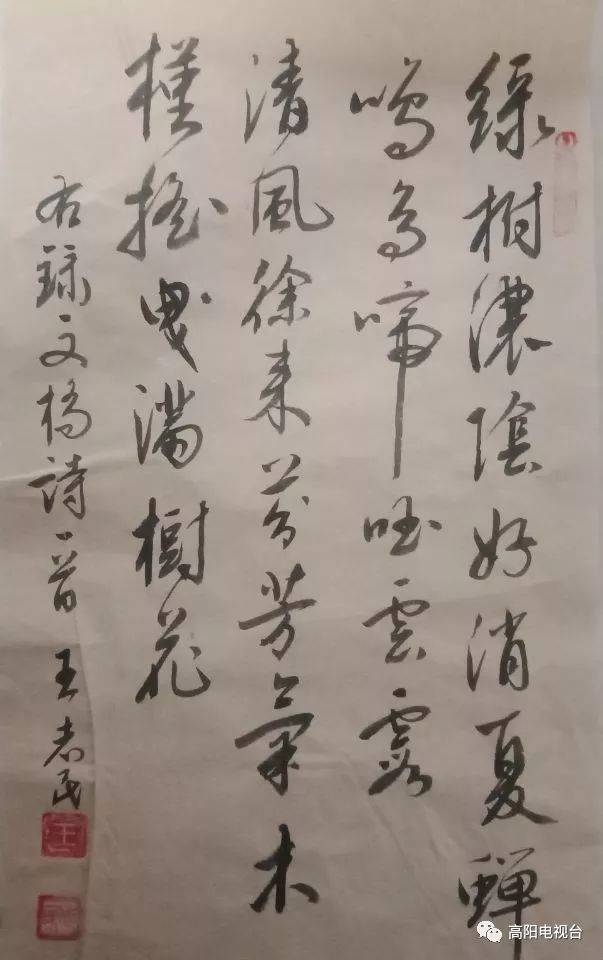 綠樹濃陰好消夏蟬
鳴鳥啼醉雲霞
清風徐來芬芳氣木
槿搖曳滿樹花
右錄文楊詩一首 王志民
高阳电视台